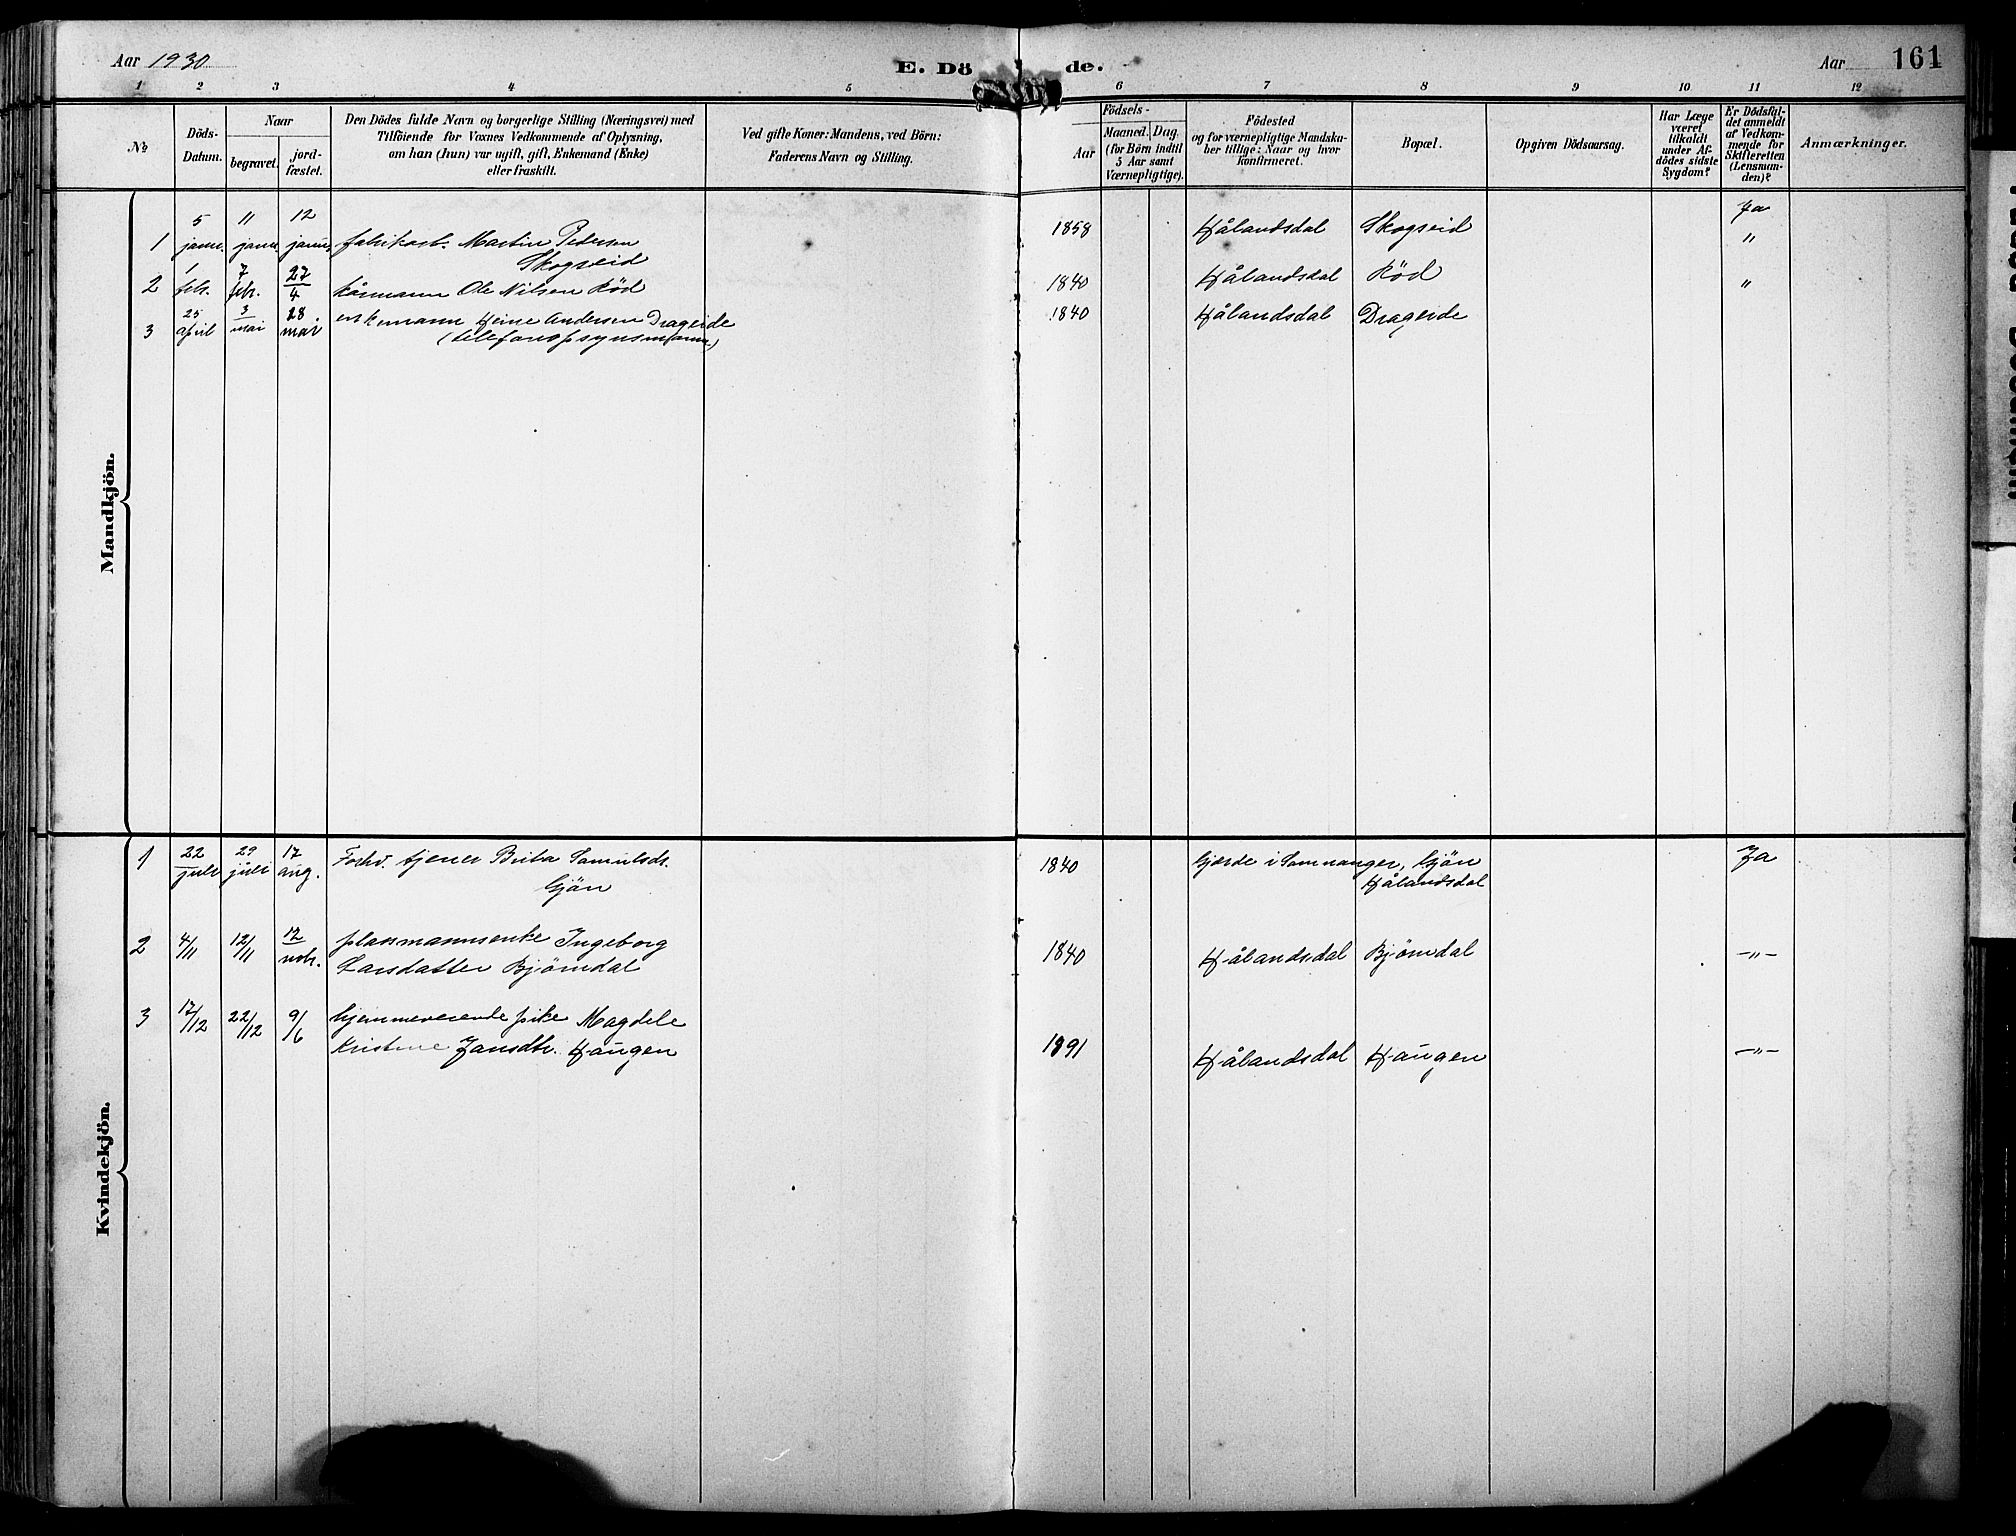 Aar 1930
E. Dö de.
Aar 161
1 2 3 4 5 6 7 8 9 10 11 12
№
Döds-
Datum.
Naar
begravet.
jord-
fæstet.
Den Dödes fulde Navn og borgerlige Stilling (Næringsvei) med
Tilföiende for Voxnes Vedkommende af Oplysning,
om han (hun) var ugift, gift, Enkemand (Enke)
eller fraskilt.
Ved gifte Koner: Mandens, ved Börn:
Faderens Navn og Stilling.
Födsels-
Aar
Maaned. Dag.
(for Börn indtil
5 Aar samt
Værnepligtige).
Födested
og for værnepligtige Mandska-
ber tillige: Naar og hvor
konfirmeret.
Bopæl.
Opgiven Dödsaarsag.
Har Læge
været
tilkaldt
under Af-
dödes sidste
Sygdom?
Er Dödsfal-
det anmeldt
af Vedkom-
mende for
Skifteretten
(Lensman-
den)?
Anmærkninger.
Mandkjön.
5 11 12 Ja
1 janu. janu. janu. fabrikarb. Martin Pedersen 1858 Hålandsdal Skogseid "
Skogseid
1 7 27
2 febr. febr. 4 kårmann Ole Nilsen Röd 1840 Hålandsdal Röd "
25 3 28.
3 april mai mai enkemann Heine Andersen Drageide 1840 Hålandsdal Drageide
(telefonopsynsmann)
Kvindekjön.
1 22 juli 29 juli 17 aug. Forhv. tjener Brita Samulsdr. 1840 Gjerde i Samnanger, Gjön Ja
Gjön Hålandsdal
2 4/11 12/11 12 nvbr. plassmannsenke Ingeborg
Larsdatter Björndal 1840 Hålandsdal Björndal -"-
3 17/12 22/12 9/6 hjemmeværende pike Magdele
Kristine Jansdtr. Haugen 1891 Hålandsdal Haugen -"-